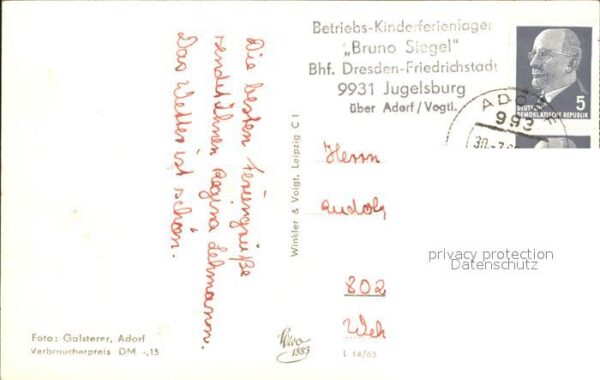 Betriebs-Kinderferienlager
„Bruno Siegel"
Bhf. Dresden-Friedrichstadt
9931 Jugelsburg
über Adorf/Vogtl.
5
DEUTSCHE
DEMOKRATISCHE REPUBLIK
ADO
993
30.-7.
Die besten Feriengrüße
sendet Ihnen Regina Lehmann.
Das Wetter ist schön.
Winkler & Voigt, Leipzig C 1
Herrn
Rudolf
802
Weh
privacy protection
Datenschutz
Foto: Galsterer, Adorf
Verbraucherpreis DM -,15
1883
L 14/63